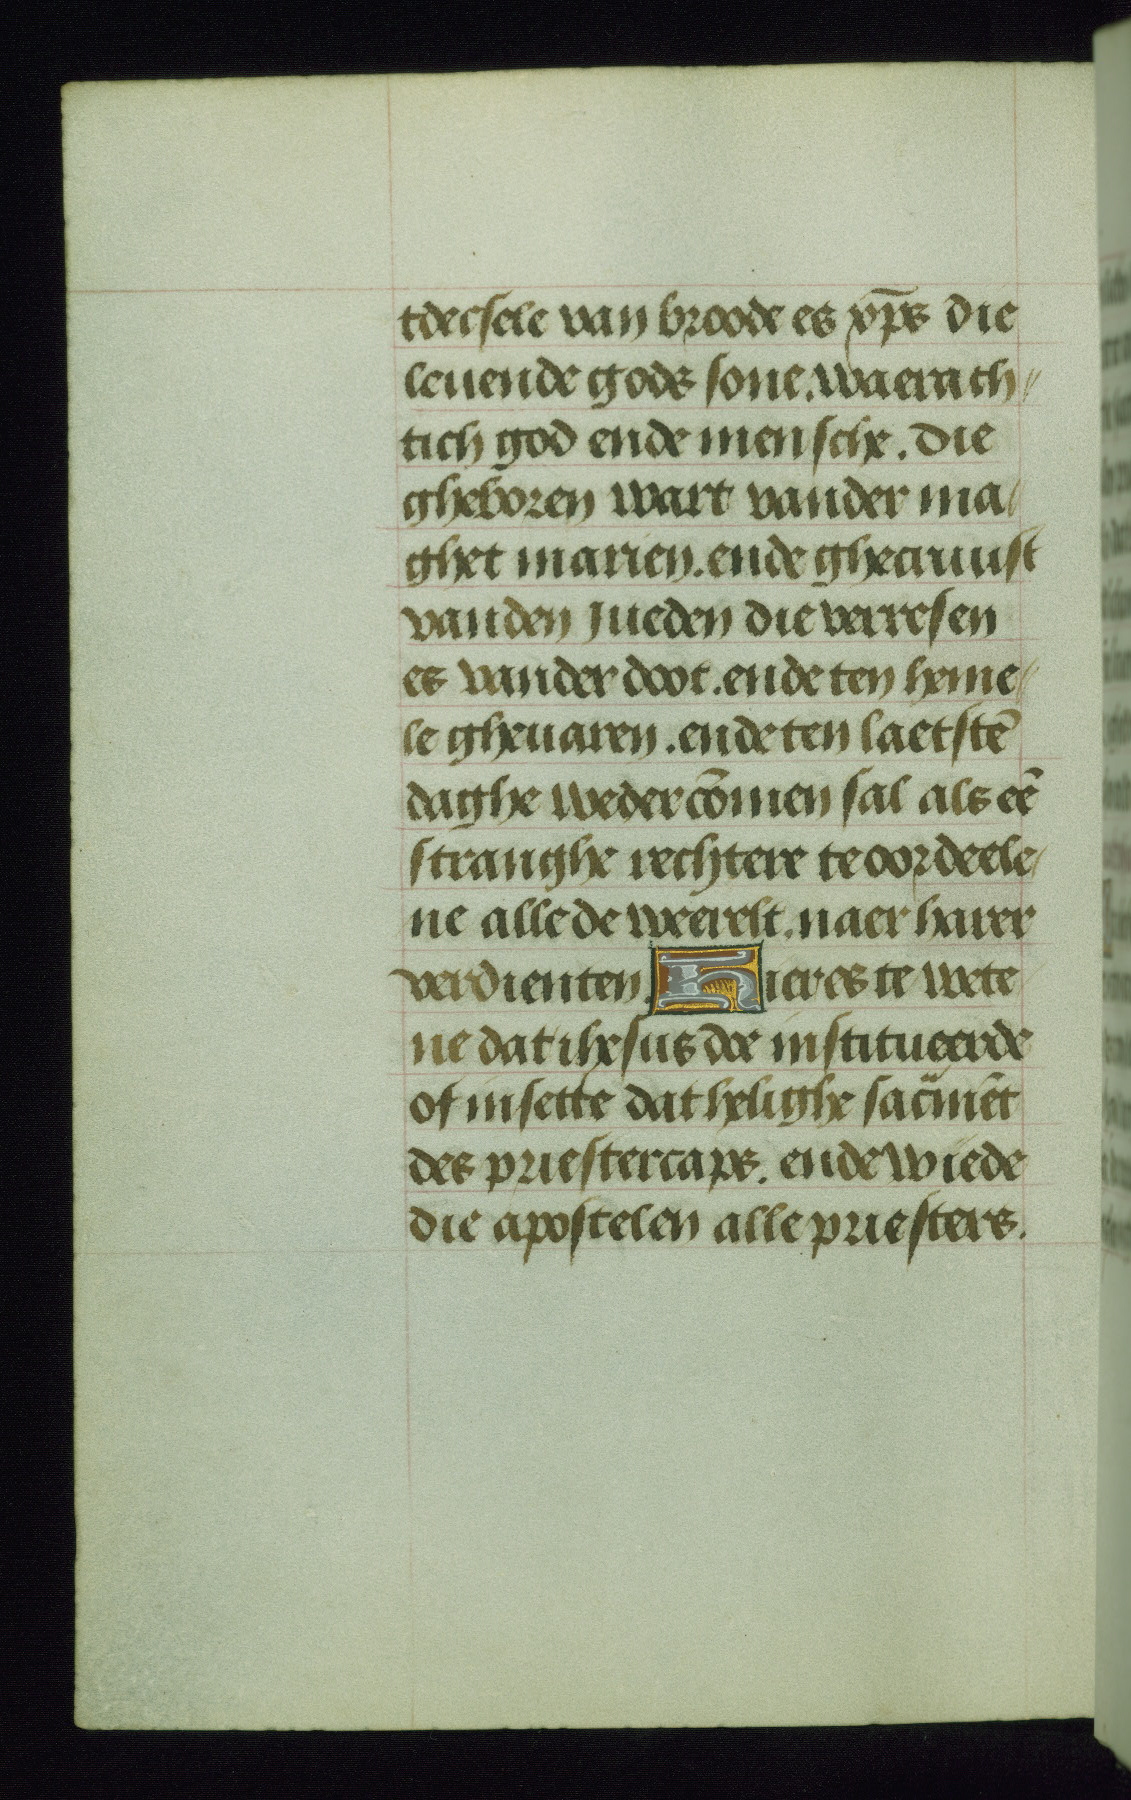 tdecsele van broode es xp̄s die
leuende gods sone. waerach⸗
tich god ende mensche. Die
gheboren wart vander ma⸗
ghet marien. ende ghecruust
vanden Jueden die verresen
es vander doot. ende ten heme⸗
le gheuaren. ende ten laetstē
daghe weder cōmen sal als eē
stranghe rechtere te oordeele⸗
ne alle de weerelt. naer harer
verdienten. Hier es te wete⸗
ne dat ihesus doe institueerde
of insette dat helighe sacͣmēt
des priestercaps. ende wiede
die apostelen alle priesters.